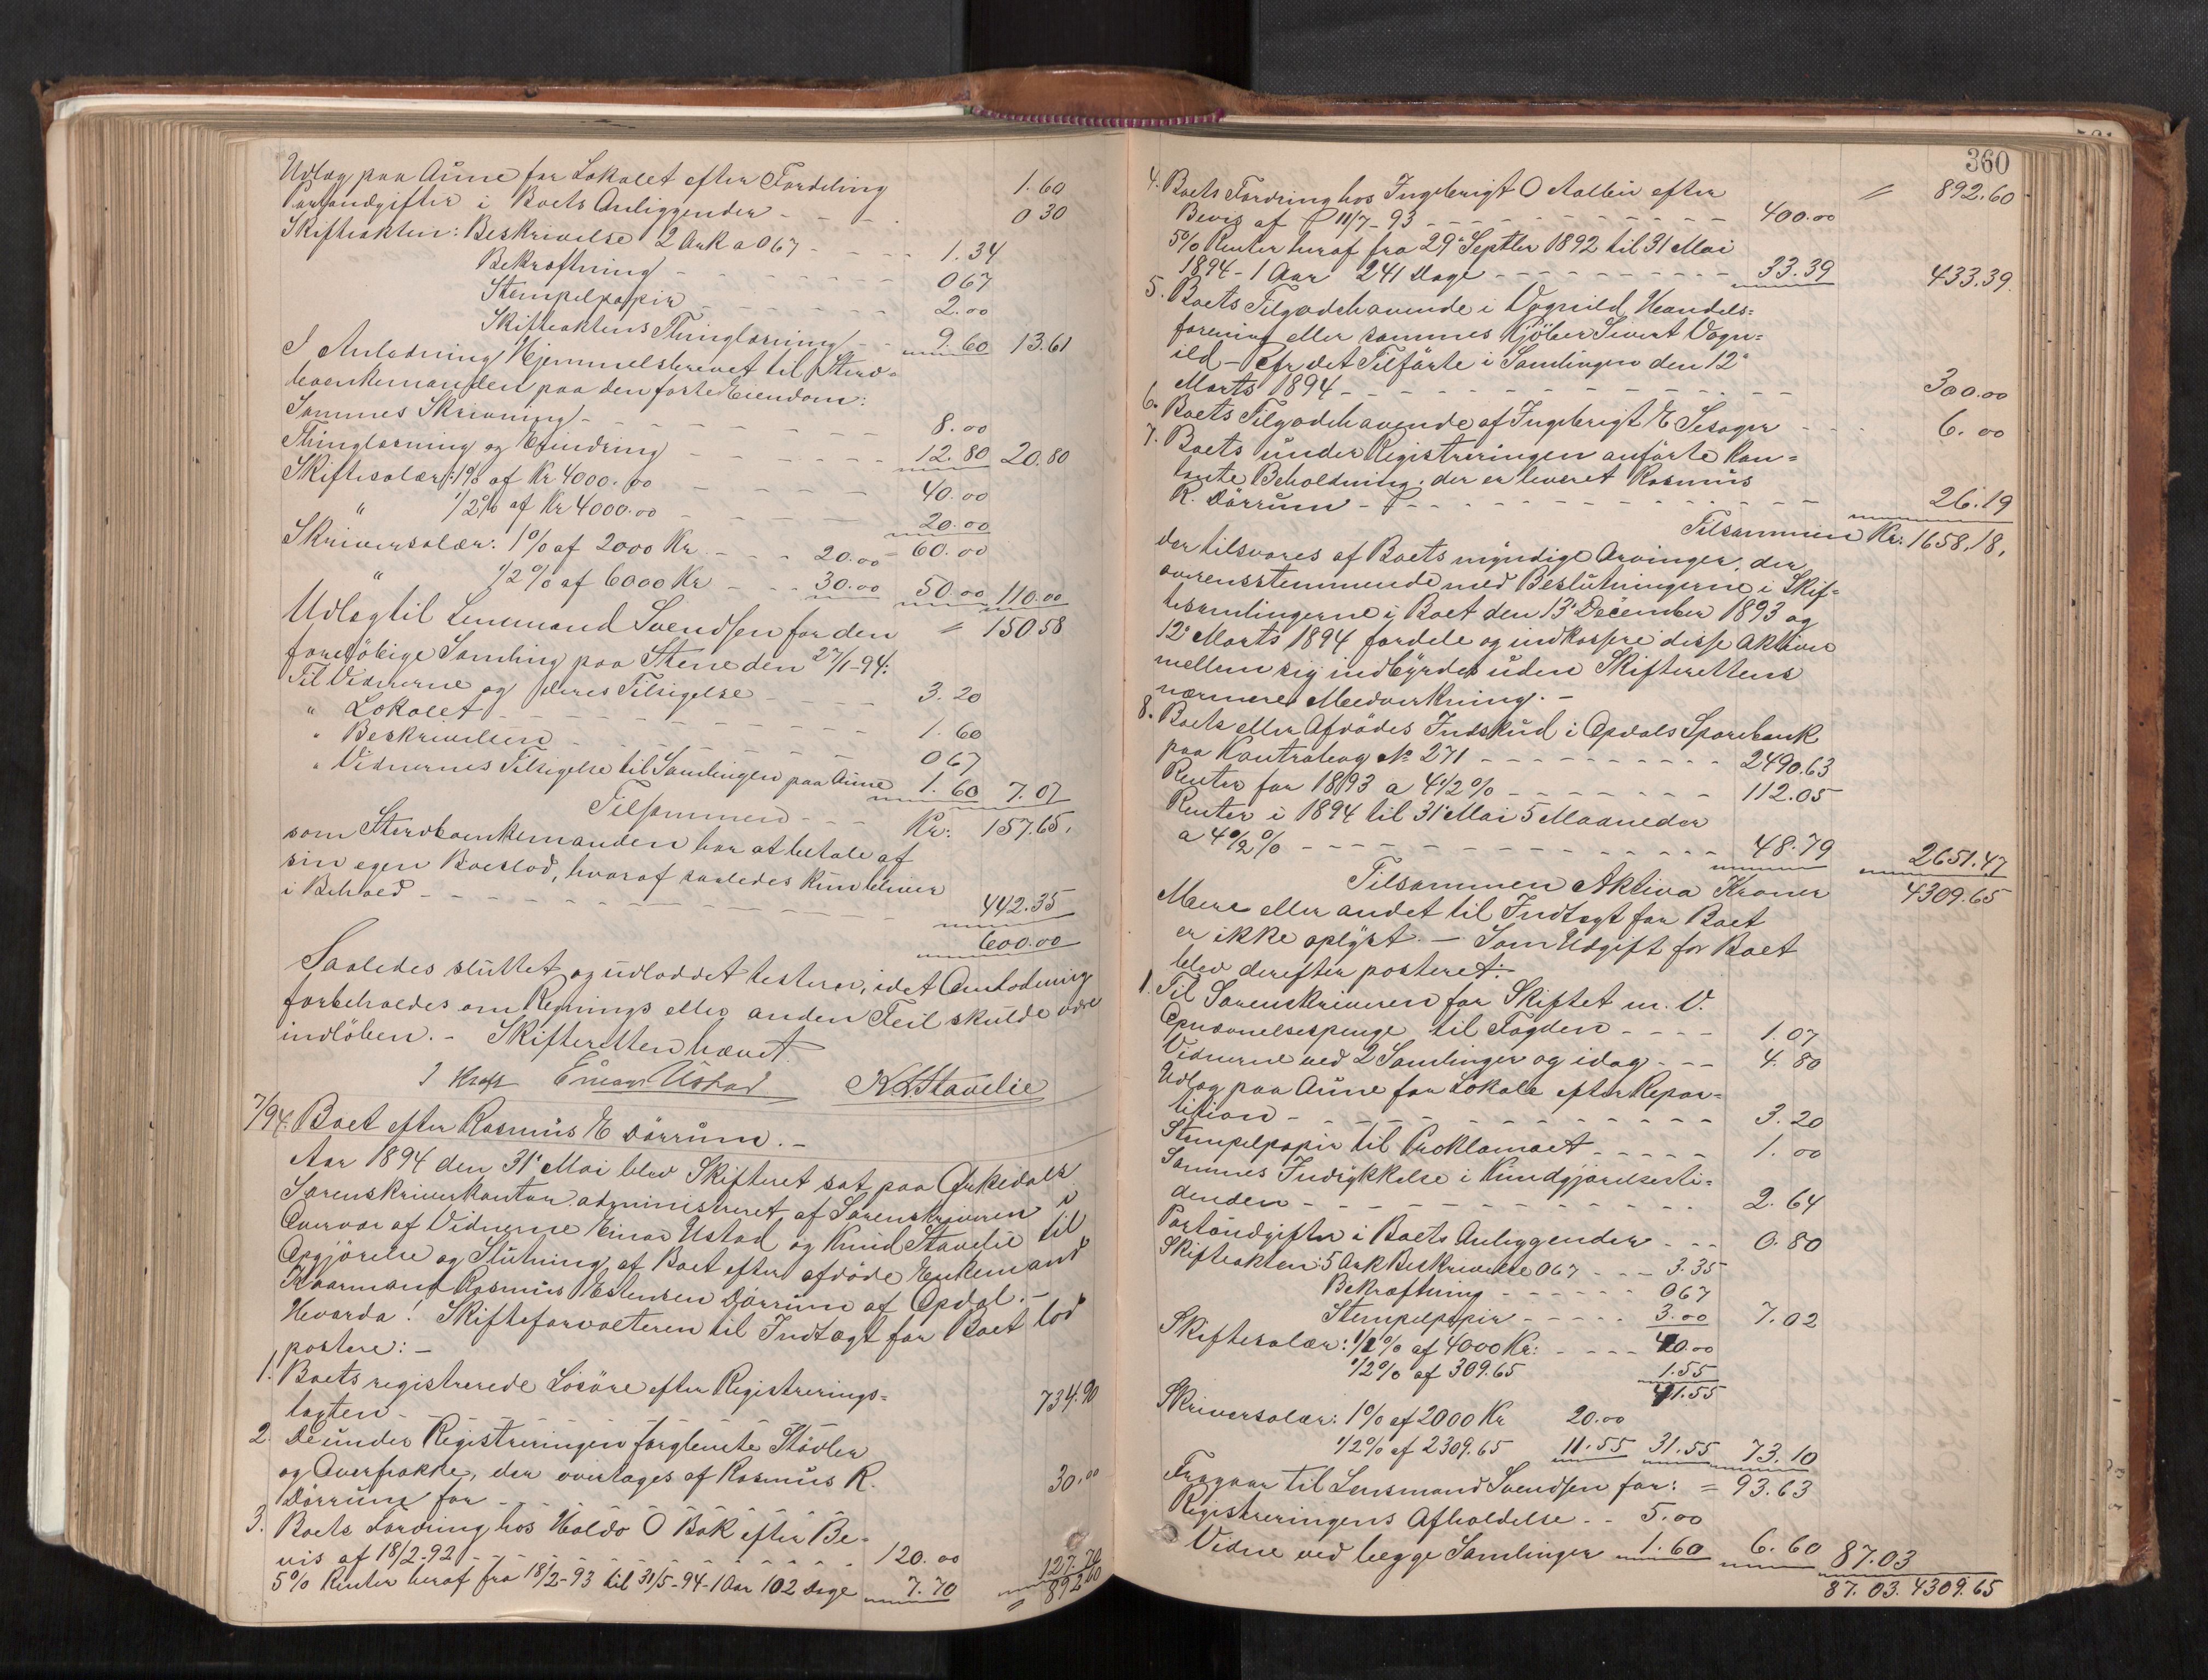 Udlæg paa Aune for Lokalet efter Fordeling 1.60
Portoudgifter i Boets Anliggender - - - - 0 30
Skifteakten: Beskrivelse 2 Ark a 067 - - - - 1.34
Bekræftning - - - - - - 067
Stempelpapir - - - - - - 2.00
Skifteaktens Thinglæsning - - 9.60 13.61
I Anledning Hjemmelsbrevet til Sterv-
boenkemanden paa den faste Eiendom:
Sammes Skrivning - - - - - - 8.00
Thinglæsning og Erindring - - - - - - 12.80 20.80
Skiftesalær: 1% af Kr 4000.00 - - - - - 40.00
" 1/2% af Kr 4000.00 - - - - 20.00
60.00
Skriversalær: 1% af 2000 Kr - - - 20.00
" 1/2% af 6000 Kr - - - 30.00 50.00 110.00
= 150 58
Udlæg til Lensmand Svendsen for den
foreløbige Samling paa Stene den 27/1-94:
Til Vidnerne og deres Tilsigelse - - - - - 3.20
" Lokalet - - - - - - - - 1.60
" Beskrivelsen - - - - - - - 067
" Vidnernes Tilsigelse til Samlingen paa Aune 1.60 7.07
Tilsammen - - - Kr: 157.65.
som Stervboenkemanden har at betale af
sin egen Boeslod, hvoraf saaledes kun bliver
i Behold - - - - - - - - - - - 442.35
600.00
Saaledes sluttet og udloddet testerer, idet Omlodning
forbeholdes om Regnings eller anden Feil skulde være
indløben. - Skifteretten hævet.
Einar Ustad K. Stavelie
7/94. Boet efter Rasmus E Dørrum. -
Aar 1894 den 31' Mai blev Skifteret sat paa Orkedals
Sorenskriverkontor administreret af Sorenskriveren i
Overvær af Vidnerne Einar Ustad og Knud Stavelie til
Opgjørelse og Slutning af Boet efter afdøde Enkemand
Kaarmand Rasmus Estensen Dørrum af Opdal. -
Hvorda! Skifteforvalteren til Indtægt for Boet lod
postere: -
1. Boets registrerede Løsøre efter Registrerings-
tagten - - - - - - - - - 734.90
2. De under Registreringen forglemte Støvler
og Overfrakke, der overtages af Rasmus R.
Dørrum for - - 30.00
3. Boets Fordring hos Haldo O Bak efter Be-
vis af 18/2-92 - - - - - - - - - 120.00
5% Renter heraf fra 18/2-93 til 31/5-94 - 1 Aar 102 Dage 7.70 127.70
= 892 60
360
= 892.60
4. Boets Fordring hos Ingebrigt O Aalbu efter
Bevis af 11/7-93 - - - - - - - - - - 400.00
5% Renter heraf fra 29' Septbr 1892 til 31 Mai
1894 - 1 Aar 241 Dage - - - - - - - - - 33.39 433.39.
5. Boets Tilgodehavende i Vognild Handels=
forening eller sammes Kjøber Sivert Vogn=
ild - Cfr det Tilførte i Samlingen den 12'
Marts 1894 - - - - - - - - - - - - - - 300.00
6. Boets Tilgodehavende af Ingebrigt E Sesager - - - 6. 00
7. Boets under Registreringen anførte kon=
tante Beholdning, der er leveret Rasmus
R. Dørrum - - - - - - - - - - - 26.19
Tilsammen Kr: 1658.18.
der tilsvares af Boets myndige Arvinger, der
overensstemmende med Beslutningerne i Skif=
tesamlingerne i Boet den 13' December 1893 og
12' Marts 1894 fordele og indkassere disse Aktiver
mellem sig indbyrdes uden Skifterettens
nærmere Medvirkning. -
8. Boets eller Afdødes Indskud i Opdals Sparebank
paa Kontrabog No 271 - - - - - - - - - - 2490.63
Renter for 1893 a 4 1/2% - - - - - - - 112.05
Renter i 1894 til 31' Mai 5 Maaneder
a 4 1/2% - - - - - - - - - - - - - - 48.79 2651.47
Tilsammen Aktiva Kroner 4309.65
Mere eller andet til Indtægt for Boet
er ikke oplyst. - Som Udgift for Boet
blev derefter posteret:
1. Til Sorenskriveren for Skiftet m. V.
Opnævnelsespenge til Fogden - - - - 1.07
Vidnerne ved 2 Samlinger og idag - - - 4.80
Udlæg paa Aune for Lokale efter Repar=
tition - - - - - - - - - - - - - 3.20
Stempelpapir til Proklamaet - - - - - 1.00
Sammes Indrykkelse i Kundgjørelsesti=
denden - - - - - - - - - - - - - 2.64
Portoudgifter i Boets Anliggender - - - 0.80
Skifteakten: 5 Ark Beskrivelse 067 - - - 3.35
Bekræftning - - - - - - 067
Stempelpapir - - - - - 3.00 7.02
Skiftesalær: 1% af 4000 Kr: - - - - 40.00
1/2% af 309.65 1.55
41.55
Skriversalær: 1% af 2000 Kr 20.00
1/2% af 2309.65 11.55 31.55 73.10
= 93.63
Fragaar til Lensmand Svendsen for:
Registreringens Afholdelse - - 5.00
Vidne ved begge Samlinger 1.60 6.60 87.03
87.03. 4309.65